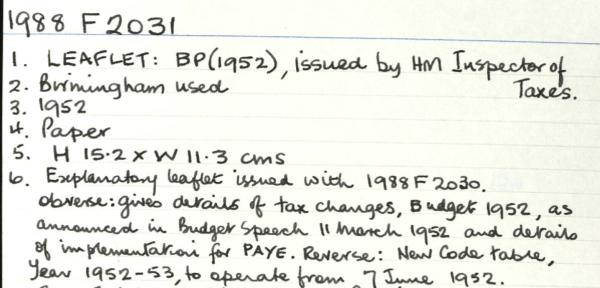 1988 F 2031
1. LEAFLET: BP(1952), issued by HM Inspector of
Taxes.
2. Birmingham used
3. 1952
4. Paper
5. H 15.2 x W 11.3 cms
6. Explanatory leaflet issued with 1988 F 2030.
obverse: gives details of tax changes, Budget 1952, as
announced in Budget Speech 11 March 1952 and details
of implementation for PAYE. Reverse: New Code table,
Year 1952-53, to operate from 7 June 1952.